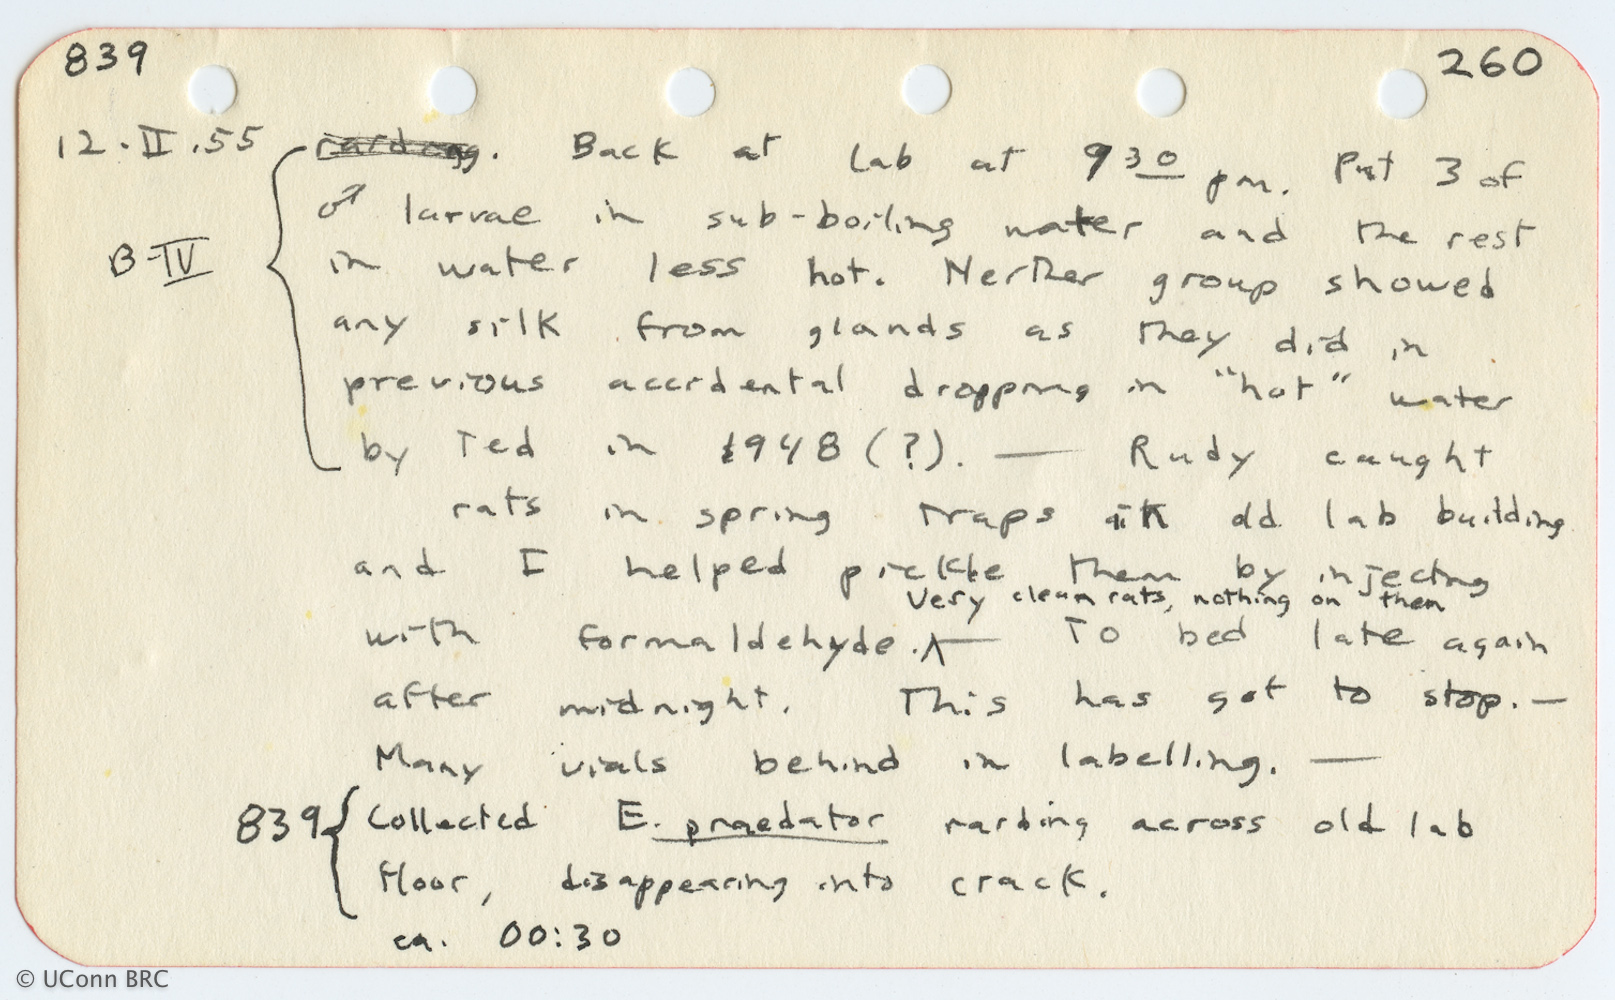 839 260
12.II.55 raiding. Back at lab at 9 30 pm. Put 3 of
♂ larvae in sub-boiling water and the rest
B-IV in water less hot. Neither group showed
any silk from glands as they did in
previous accidental dropping in "hot" water
by Ted in 1948 (?). — Rudy caught
rats in spring traps in old lab building
and I helped pickle them by injecting
Very clean rats, nothing on them
with formaldehyde. — To bed late again
after midnight. This has got to stop. —
Many vials behind in labelling. —
839 Collected E. praedator raiding across old lab
floor, disappearing into crack.
ca. 00:30
© UConn BRC